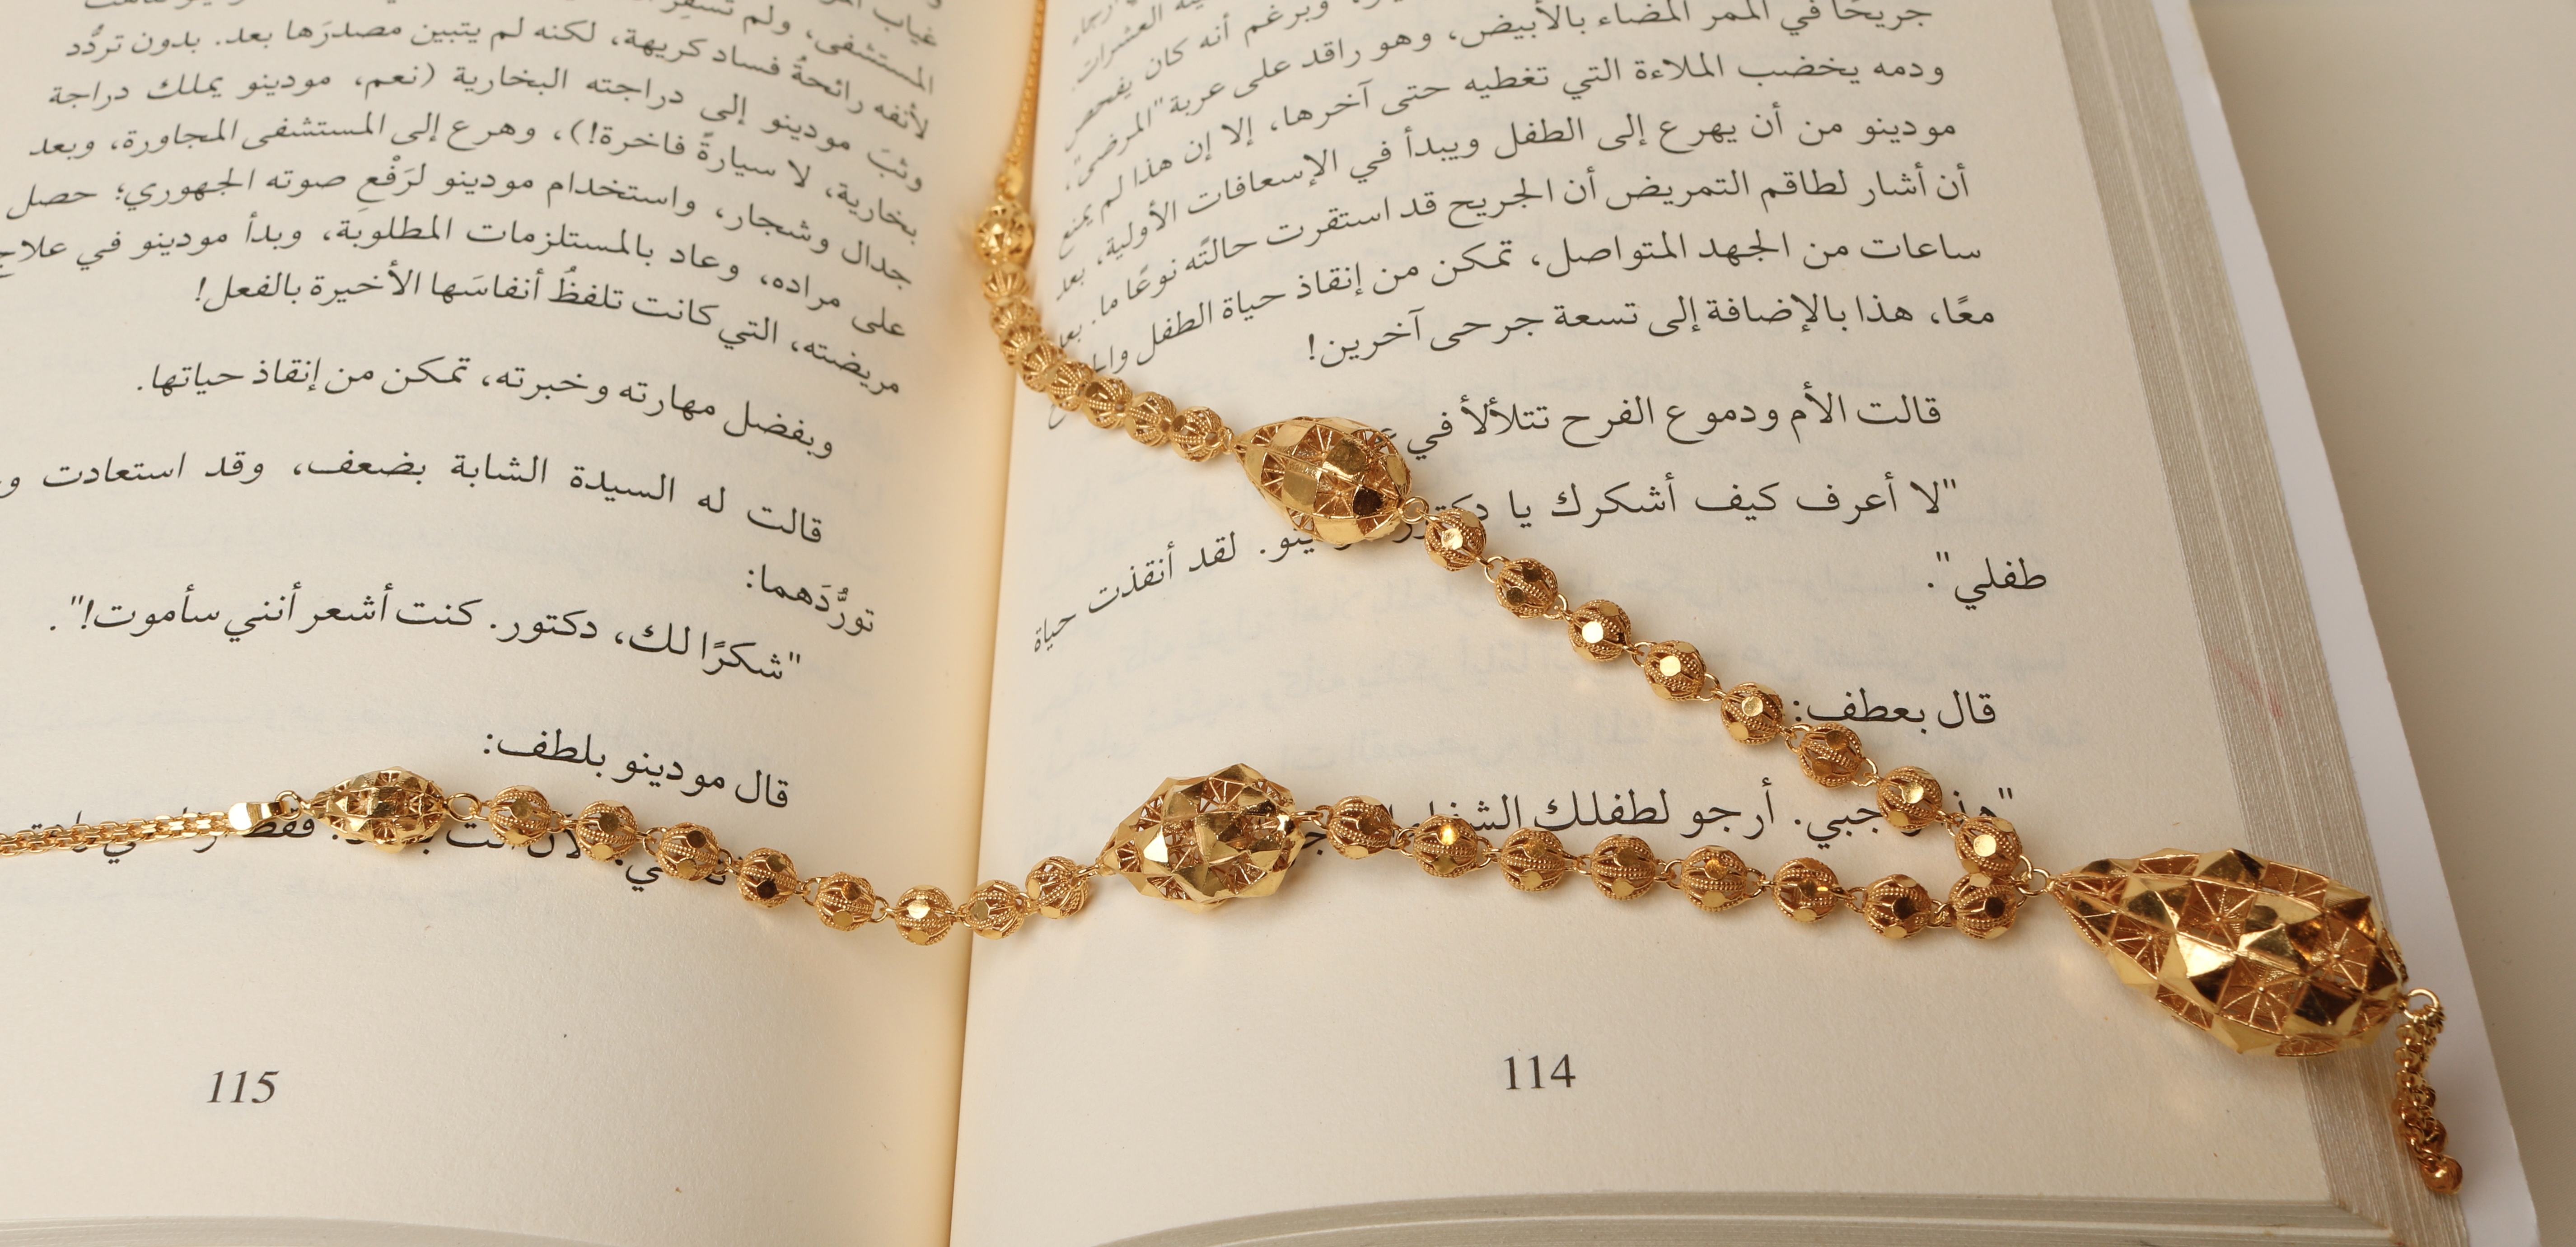 جريحًا في الممر المضاء بالأبيض، وهو راقد على عربة "المرضى"،
ودمه يخضب الملاءة التي تغطيه حتى آخرها، إلا إن هذا لم يمنع
مودينو من أن يهرع إلى الطفل ويبدأ في الإسعافات الأولية، بعد
أن أشار لطاقم التمريض أن الجريح قد استقرت حالتُه نوعًا ما. بعد
ساعات من الجهد المتواصل، تمكن من إنقاذ حياة الطفل
معًا، هذا بالإضافة إلى تسعة جرحى آخرين!
قالت الأم ودموع الفرح تتلألأ في
"لا أعرف كيف أشكرك يا لقد أنقذت حياة
طفلي".
قال بعطف:
أرجو لطفلك
114
المستشفى، ولم
لأنفه رائحةُ فساد كريهة، لكنه لم يتبين مصدرَها بعد. بدون تردُّد
وثبَ مودينو إلى دراجته البخارية (نعم، مودينو يملك دراجة
بخارية، لا سيارةً فاخرة!)، وهرع إلى المستشفى المجاورة، وبعد
جدال وشجار، واستخدام مودينو لرَفْعِ صوته الجهوري؛ حصل
على مراده، وعاد بالمستلزمات المطلوبة، وبدأ مودينو في علاج
مريضته، التي كانت تلفظُ أنفاسَها الأخيرة بالفعل!
وبفضل مهارته وخبرته، تمكن من إنقاذ حياتها.
قالت له السيدة الشابة بضعف، وقد استعادت
تورُّدَهما:
"شكرًا لك، دكتور. كنت أشعر أنني سأموت!".
قال مودينو بلطف:
115